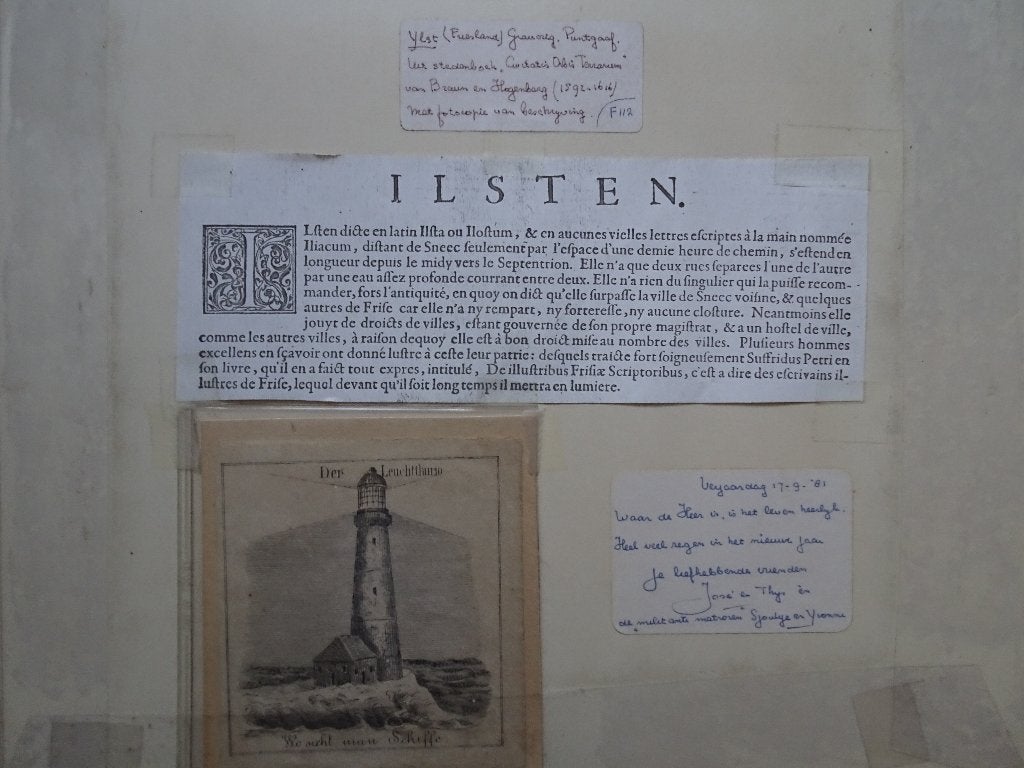 Ylst (Friesland) Gravureg. Puntgaaf.
Uit stedenboek "Civitatis Orbis Terrarum"
van Braun en Hogenberg (1592-1616)
Met fotocopie van beschrijving. F112
ILSTEN.
ILsten dicte en latin Ilsta ou Ilostum, & en aucunes vielles lettres escriptes à la main nommée
Iliacum, distant de Sneec seulement par l'espace d'une demie heure de chemin, s'estend en
longueur depuis le midy vers le Septentrion. Elle n'a que deux rues separees l'une de l'autre
par une eau assez profonde courrant entre deux. Elle n'a rien du singulier qui la puisse recom-
mander, fors l'antiquité, en quoy on dict qu'elle surpasse la ville de Sneec voisine, & quelques
autres de Frise car elle n'a ny rempart, ny forteresse, ny aucune closture. Neantmoins elle
jouyt de droicts de villes, estant gouvernée de son propre magistrat, & a un hostel de ville,
comme les autres villes, à raison dequoy elle est à bon droict mise au nombre des villes. Plusieurs hommes
excellens en sçavoir ont donné lustre à ceste leur patrie: desquels traicte fort soigneusement Suffridus Petri en
son livre, qu'il en a faict tout expres, intitulé, De illustribus Frisiæ Scriptoribus, c'est a dire des escrivains il-
lustres de Frise, lequel devant qu'il soit long temps il mettra en lumiere.
Der Leuchtthurm
Wo sieht man Schiffe
Verjaardag 17-9-'81
Waar de Heer is, is het leven heerlijk.
Heel veel zegen in het nieuwe jaar
Je liefhebbende vrienden
José en Thys en
de "militante matrozen" Sjoukje en Yvonne